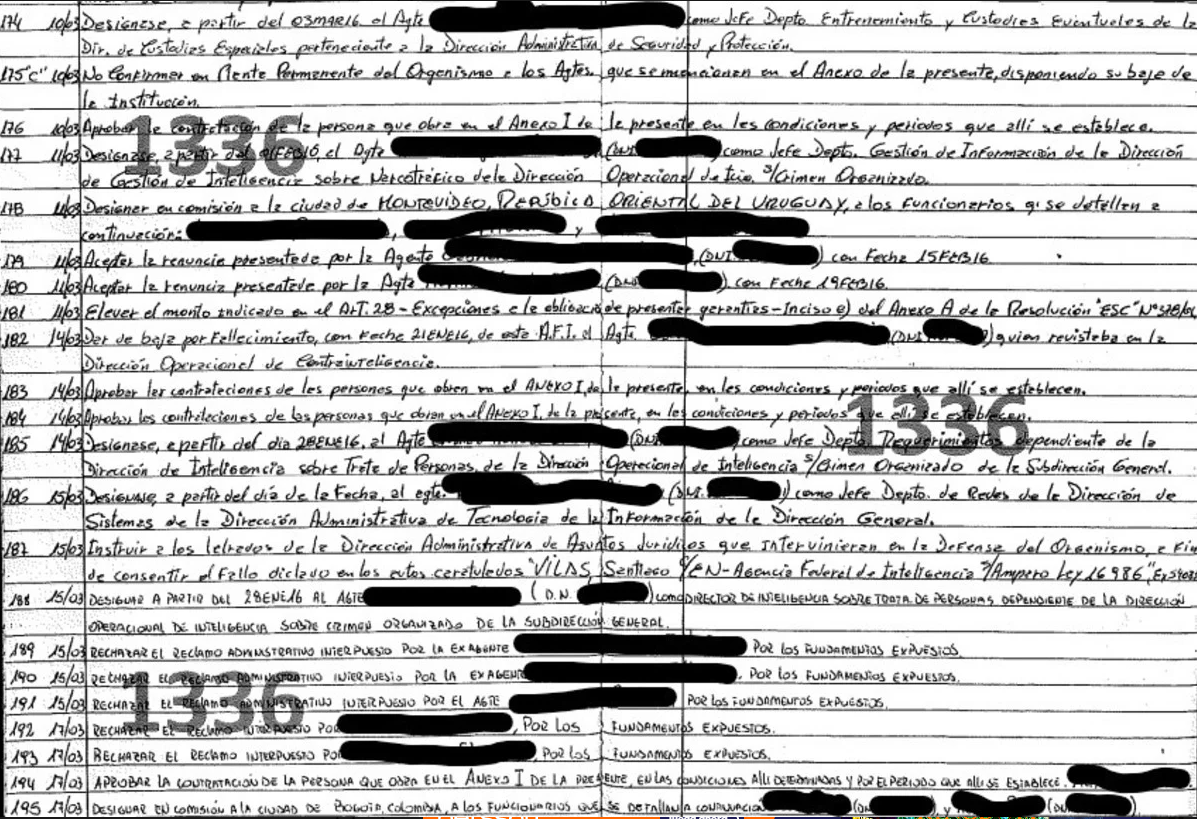 174 10/03 Desígnase, a partir del 03MAR16 al Agte como Jefe Depto. Entrenamiento y Custodias Eventuales de la
Dir. de Custodias Especiales perteneciente a la Dirección Administrativa de Seguridad y Protección.
175"C" 10/03 No Confirmar en Planta Permanente del Organismo a los Agtes. que se mencionan en el Anexo de la presente, disponiendo su baja de
la Institución.
176 10/03 Aprobar la contratación de la persona que obra en el Anexo I de la presente en las condiciones y periodos que allí se establece.
1336
177 11/03 Desígnase, a partir del 01FEB16, el Agte (DNI ) como Jefe Depto. Gestión de Información de la Dirección
de Gestión de Inteligencia sobre Narcotráfico de la Dirección Operacional de Icia. s/Crimen Organizado.
178 11/03 Designar en comisión a la ciudad de MONTEVIDEO, REPÚBLICA ORIENTAL DEL URUGUAY, a los funcionarios q' se detallan a
continuación: , y
179 11/03 Aceptar la renuncia presentada por la Agente , (DNI. ) con Fecha 15FEB16.
180 11/03 Aceptar la renuncia presentada por la Agte (DNI. ) con Fecha 19FEB16.
181 11/03 Elevar el monto indicado en el ART. 28 - Excepciones a la obligació de presentar garantías - Inciso e) del Anexo A de la Resolución "ESC" N°
182 14/03 Dar de baja por Fallecimiento, con Fecha 21ENE16, de esta A.F.I. al Agte. (DNI ) quien revistaba en la
Dirección Operacional de Contrainteligencia.
183 14/03 Aprobar las contrataciones de las personas que obran en el ANEXO I, de la presente, en las condiciones y periodos que allí se establecen.
184 14/03 Aprobar las contrataciones de las personas que obran en el ANEXO I, de la presente, en las condiciones y periodos que allí se establecen.
1336
185 14/03 Desígnase, a partir del día 28ENE16, al Agte (DNI ) como Jefe Depto. Requerimientos dependiente de la
Dirección de Inteligencia sobre Trata de Personas, de la Dirección Operacional de Inteligencia s/Crimen Organizado de la Subdirección General.
186 15/03 Desígnase, a partir del día de la Fecha, al agte. (DNI. ) como Jefe Depto. de Redes de la Dirección de
Sistemas de la Dirección Administrativa de Tecnología de la Información de la Dirección General.
187 15/03 Instruir a los letrados de la Dirección Administrativa de Asuntos Jurídicos que Intervinieran en la Defensa del Organismo, a Fin
de consentir el Fallo dictado en los autos caratulados "VILAS, Santiago c/EN-Agencia Federal de Inteligencia s/Amparo Ley 16986,"
188 15/03 DESIGNAR A PARTIR DEL 28ENE16 AL AGTE ( D.N. ) COMO DIRECTOR DE INTELIGENCIA SOBRE TRATA DE PERSONAS DEPENDIENTE DE LA DIRECCIÓN
OPERACIONAL DE INTELIGENCIA SOBRE CRIMEN ORGANIZADO DE LA SUBDIRECCIÓN GENERAL.
189 15/03 RECHAZAR EL RECLAMO ADMINSTRATIVO INTERPUESTO POR LA EXAGENTE POR LOS FUNDAMENTOS EXPUESTOS.
190 15/03 RECHAZAR EL RECLAMO ADMINISTRATIVO INTERPUESTO POR LA EXAGENTE . POR LOS FUNDAMENTOS EXPUESTOS.
1336
191 15/03 RECHAZAR EL RECLAMO ADMINISTRATIVO INTERPUESTO POR EL AGTE POR LOS FUNDAMENTOS EXPUESTOS.
192 17/03 RECHAZAR EL RECLAMO INTERPUESTO POR , POR LOS FUNDAMENTOS EXPUESTOS.
193 17/03 RECHAZAR EL RECLAMO INTERPUESTO POR , POR LOS FUNDAMENTOS EXPUESTOS.
194 17/03 APROBAR LA CONTRATACIÓN DE LA PERSONA QUE OBRA EN EL ANEXO I DE LA PRESENTE, EN LAS CONDICIONES ALLI DETERMINADAS Y POR EL PERIODO QUE ALLI SE ESTABLECE.
195 17/03 DESIGNAR EN COMISIÓN A LA CIUDAD DE BOGOTA, COLOMBIA, A LOS FUNCIONARIOS QUE SE DETALLAN A CONTINUACION ( ), Y ( )